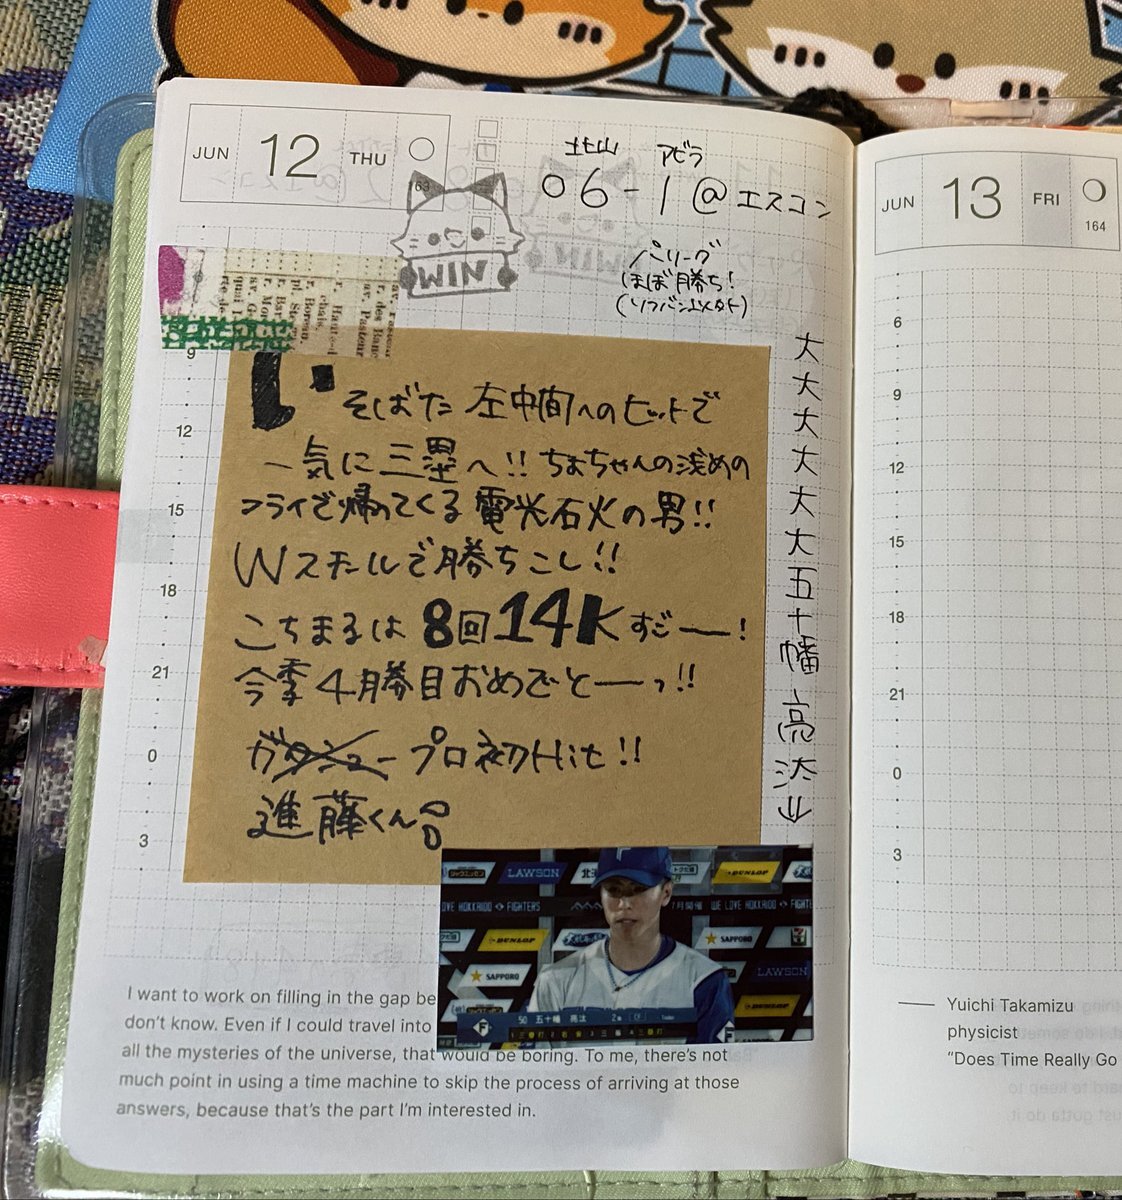 JUN 12 THU
63
北山 アビラ
○6-1@エスコン
WIN
パリーグ
ほぼ勝ち!
(ソフバン以外)
い そばた 左中間へのヒットで
一気に三塁へ!! ちおちゃんの浅めの
フライで帰ってくる電光石火の男!!
Wスチールで勝ちこし!!
こちまるは8回14Kすごー!
今季4勝目おめでとーっ!!
プロ初Hit!!
進藤くん
大大大大大大五十幡亮汰
9
12
15
18
21
0
3
LAWSON
DUNLOP
LOVE HOKKAIDO FIGHTERS
WE LOVE HOKKAIDO FIGHTERS
DUNLOP
SAPPORO
SAPPORO
LAWSON
DUNLOP
50 五十幡 亮汰
I want to work on filling in the gap be
don't know. Even if I could travel into
all the mysteries of the universe, that would be boring. To me, there's not
much point in using a time machine to skip the process of arriving at those
answers, because that's the part I'm interested in.
JUN 13 FRI
164
6
9
12
15
18
21
0
3
Yuichi Takamizu
physicist
"Does Time Really Go